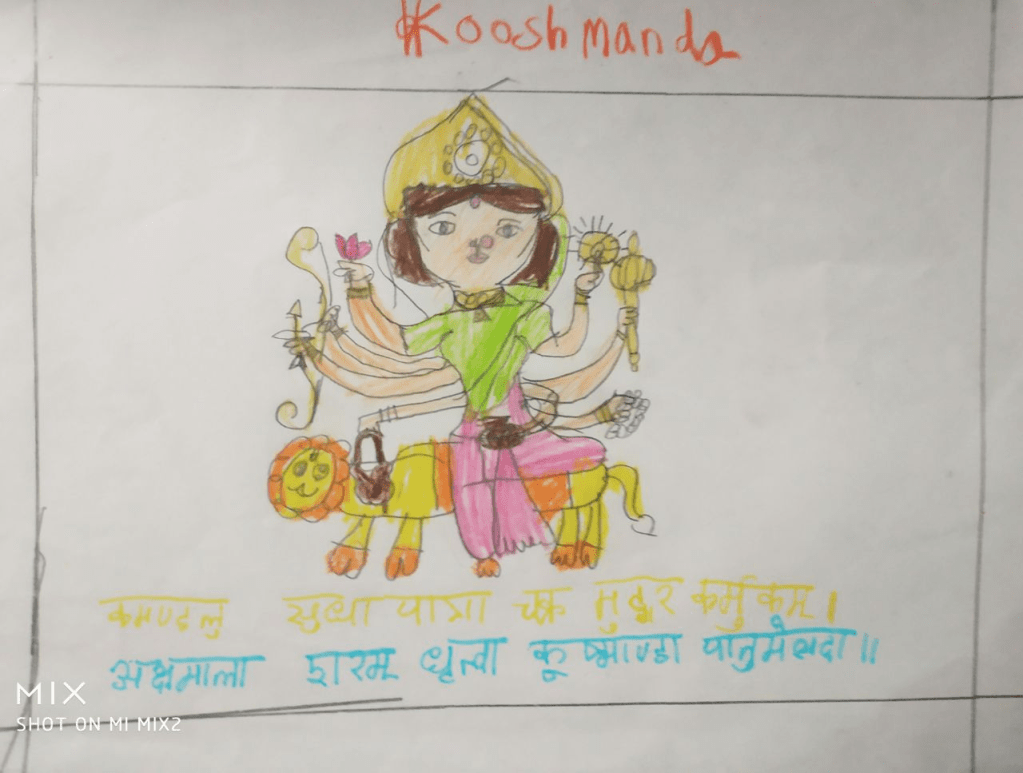 Kooshmanda
कमण्डलु सुधा पात्रा चक्र मुद्गर कर्मुकम्।
अक्षमाला शरम् धृत्वा कूष्माण्डा पातुमेसदा॥
MIX
SHOT ON MI MIX2